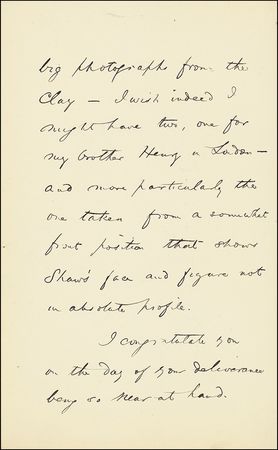 big photographs from the
Clay — I wish indeed I
might have two, one for
my brother Henry in London —
and more particularly the
one taken from a somewhat
front position that shows
Shaw's face and figure not
in absolute profile.
I congratulate you
on the day of your deliverance
being so near at hand.